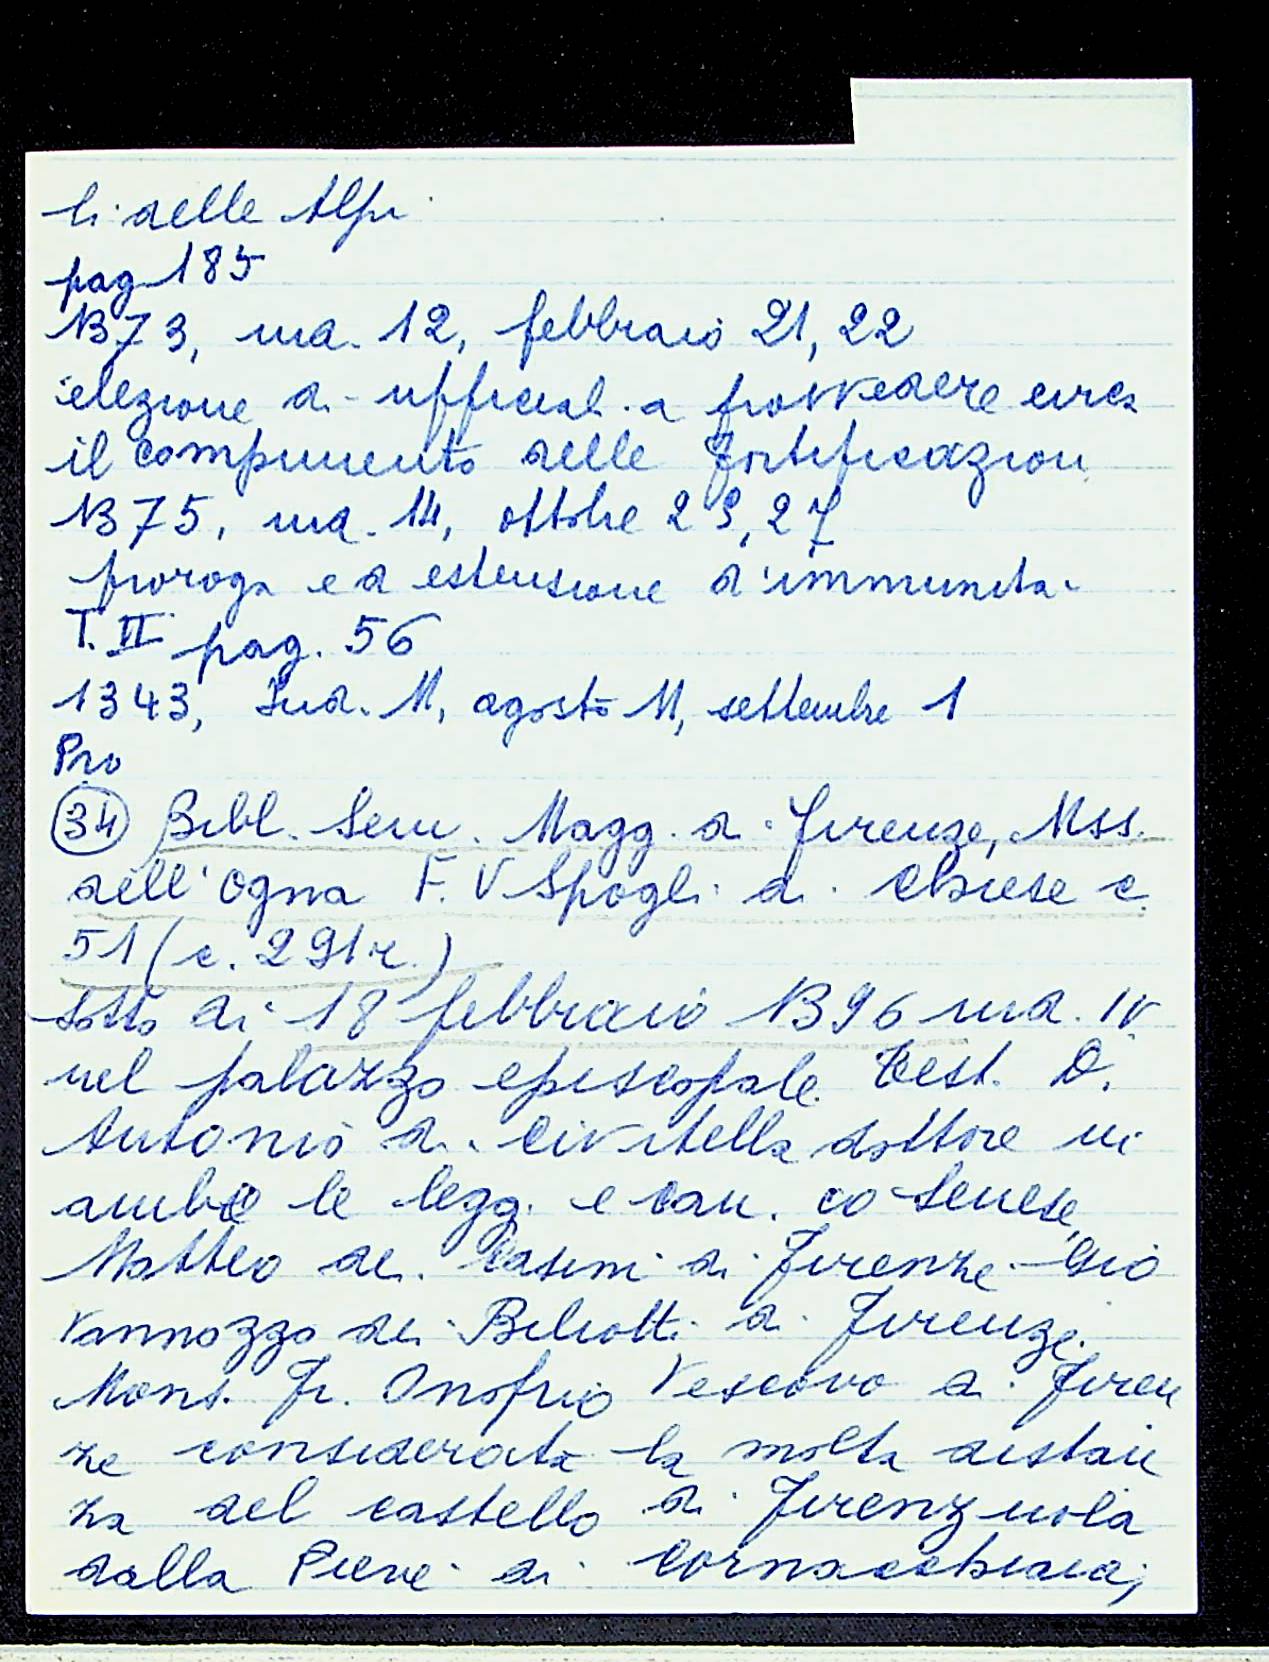 li delle Alpi
pag 185
1373, ind. 12, febbraio 21, 22
elezione di ufficiali a provvedere circa
il compimento delle fortificazioni
1375, ind. 14, ottobre 23, 27
proroga ed estensione d'immunità
T. II pag. 56
1343, Ind. 11, agosto 11, settembre 1
Pro
(34) Bibl. Sem. Magg. di Firenze, Mss.
dell'Ogna F. V Spogli di Chiese c.
51 (c. 291r.)
sotto di 18 febbraio 1396 ind. IV
nel palazzo episcopale. Test. D.
Antonio di Civitella dottore in
ambo le legg. e can. co senese,
Matteo dei Casini di Firenze - Gio
vannozzo dei Biliotti di Firenze.
Mons. Fr. Onofrio Vescovo di Firen
ze considerata la molta distan
za del castello di Firenzuola
dalla Pieve di Cornacchiaia,